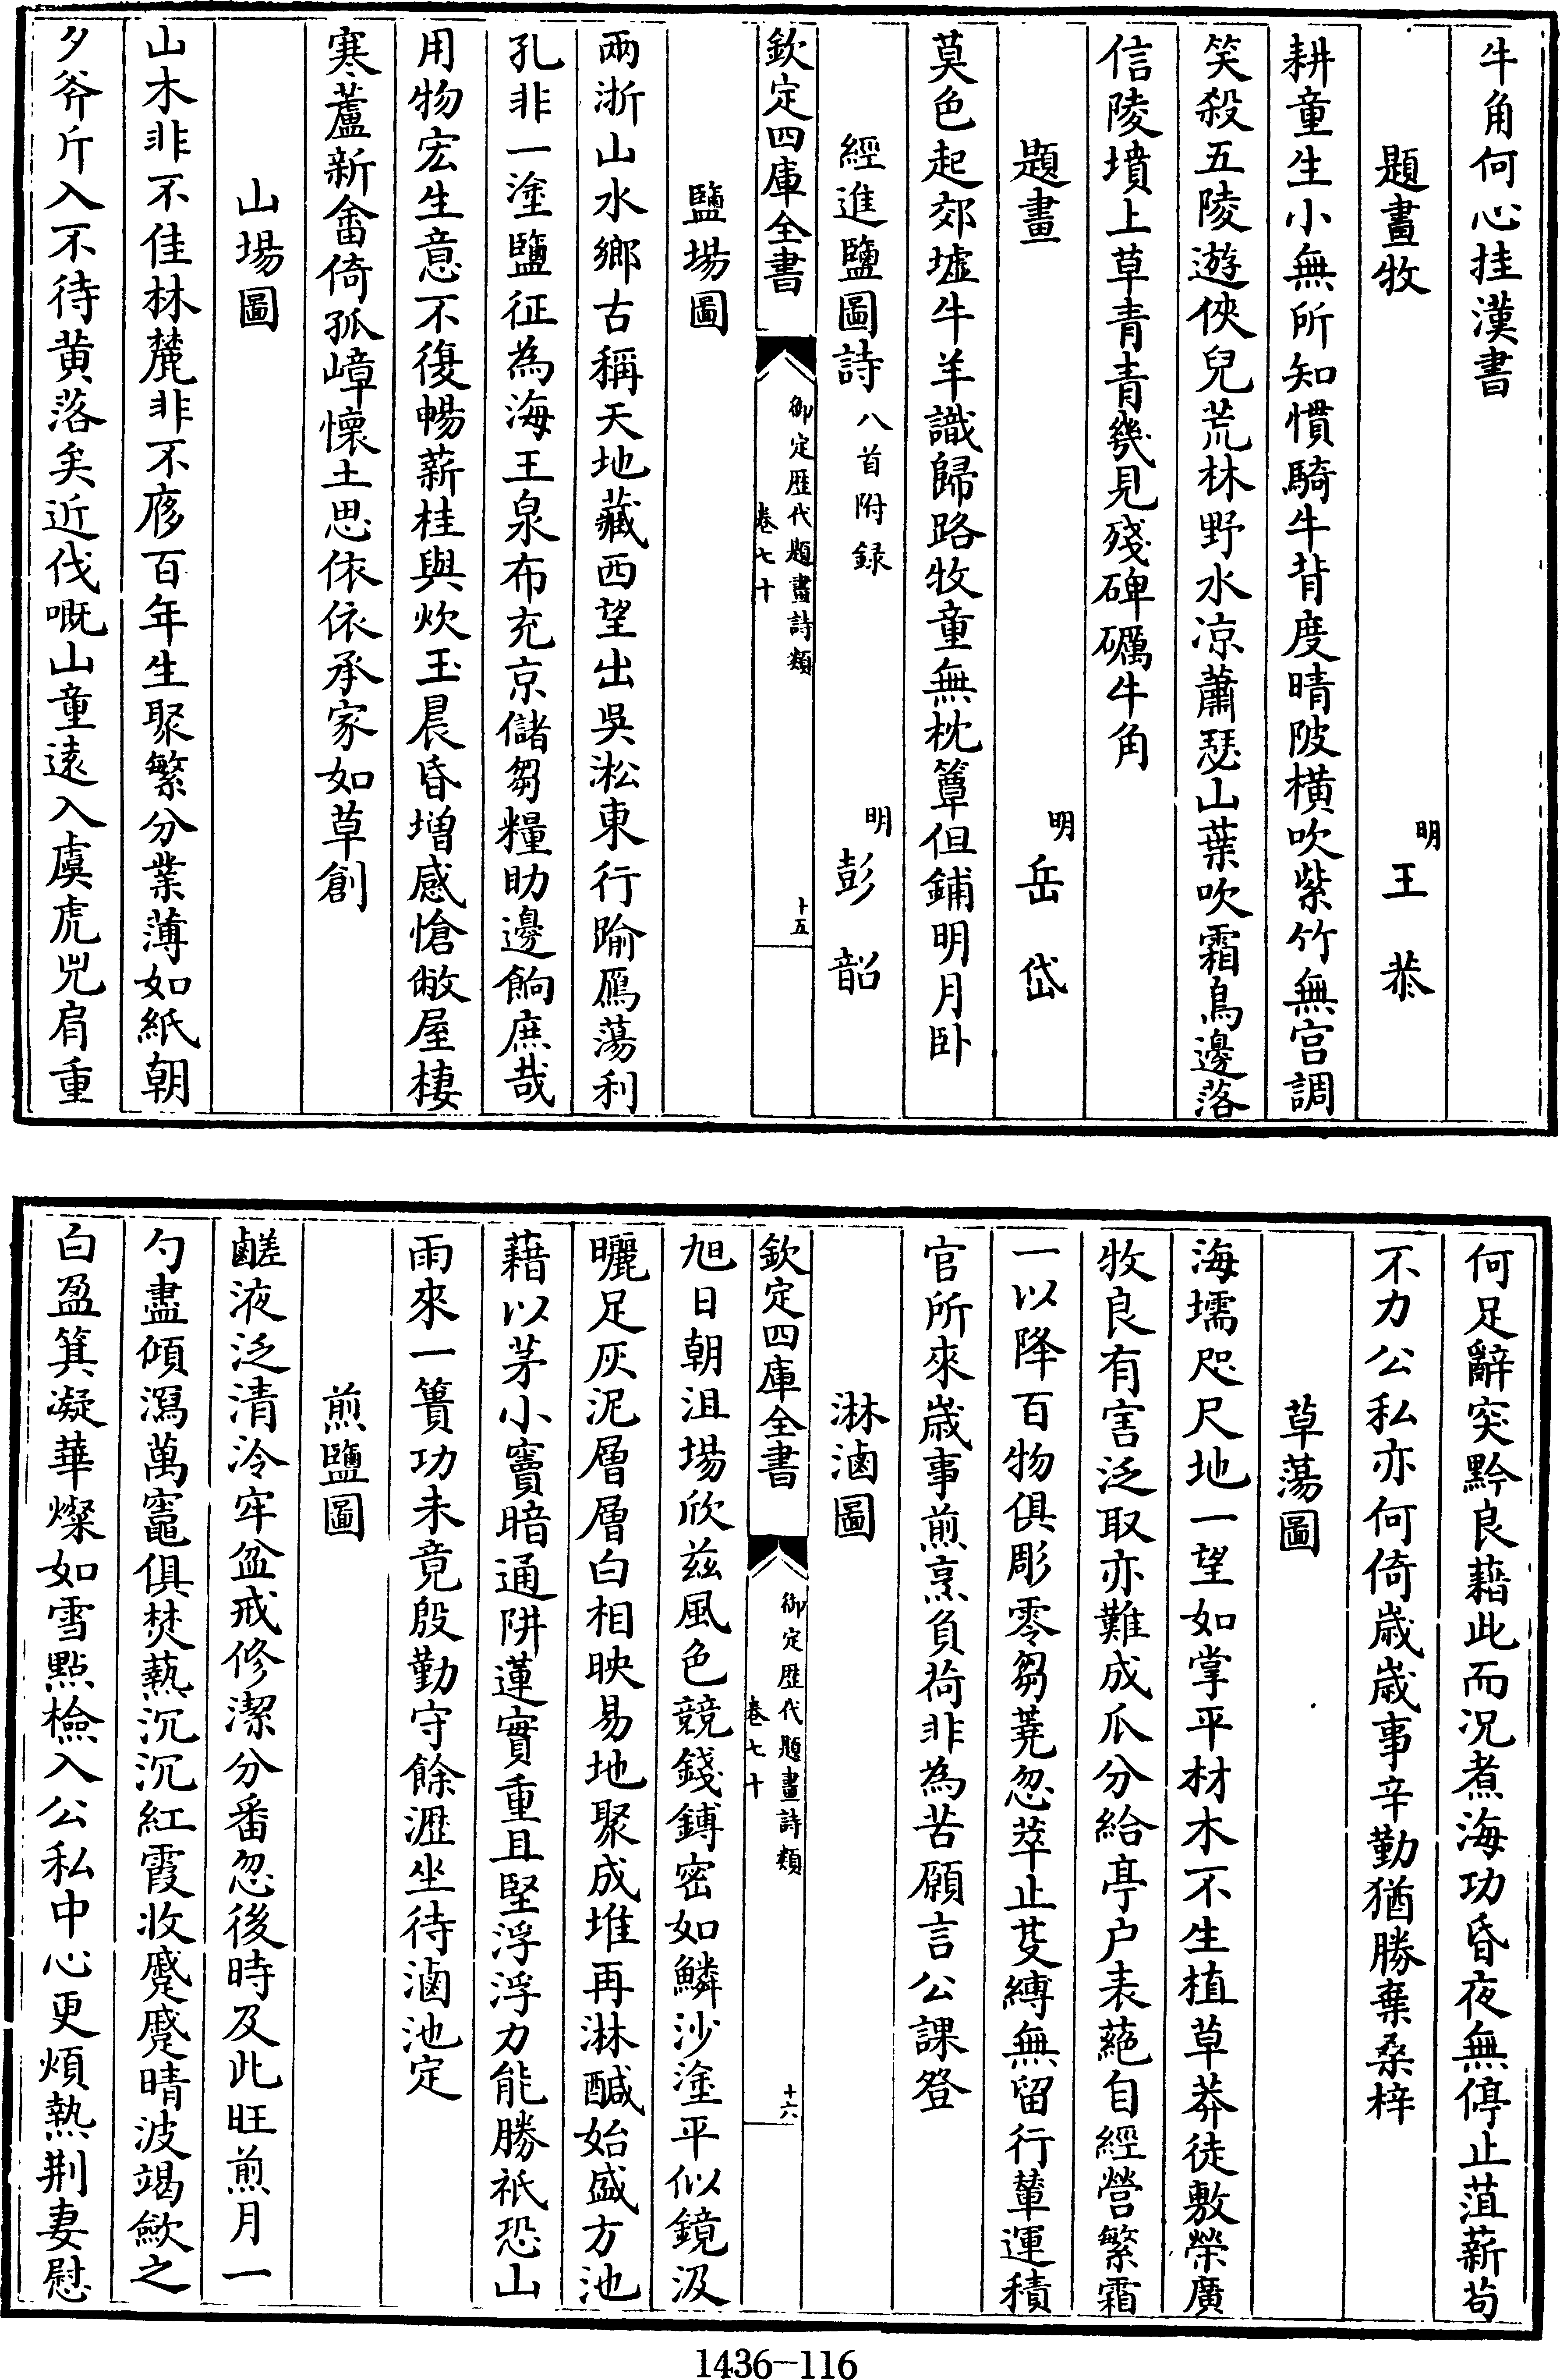 牛角何心挂漢書
題畫牧
明
王恭
耕童生小無所知慣騎牛背度晴陂橫吹紫竹無宫調
笑殺五陵遊俠兒荒林野水凉蕭瑟山葉吹霜鳥邊落
信陵墳上草青青幾見殘碑礪牛角
題畫
明
岳岱
莫色起郊墟牛羊識歸路牧童無枕簟但鋪明月卧
經進鹽圖詩八首附録
明
彭韶
欽定四庫全書
御定歴代題畫詩類
卷七十
十五
鹽場圖
兩浙山水鄉古稱天地藏西望出吳淞東行踰鴈蕩利
孔非一塗鹽征為海王泉布充京儲芻糧助邊餉庶哉
用物宏生意不復暢薪桂與炊玉晨昏增感愴敝屋棲
寒蘆新畬倚孤嶂懷土思依依承家如草創
山場圖
山木非不佳林麓非不廖百年生聚繁分業薄如紙朝
夕斧斤入不待黄落矣近伐嘅山童遠入虞虎兕肩重
何足辭突黔良藉此而况煮海功昏夜無停止菹薪茍
不力公私亦何倚歲歲事辛勤猶勝棄桑梓
草蕩圖
海壖咫尺地一望如掌平材木不生植草莽徒敷榮廣
牧良有害泛取亦難成瓜分給亭户表蕝自經營繁霜
一以降百物俱彫零芻蕘忽萃止芟縛無留行輦運積
官所來歲事煎烹負荷非為苦願言公課登
淋滷圖
欽定四庫全書
御定歴代題畫詩類
卷七十
十六
旭日朝沮場欣兹風色競錢鎛密如鱗沙塗平似鏡汲
曬足灰泥層層白相映易地聚成堆再淋醎始盛方池
藉以茅小竇暗通阱蓮實重且堅浮浮力能勝祇恐山
雨來一簣功未竟殷勤守餘瀝坐待滷池定
煎鹽圖
鹺液泛清泠牢盆戒修潔分番忽後時及此旺煎月一
勺盡傾瀉萬竈俱焚爇沉沉紅霞收蹙蹙晴波竭歛之
白盈箕凝華燦如雪點檢入公私中心更煩熱荆妻慰
1436—116